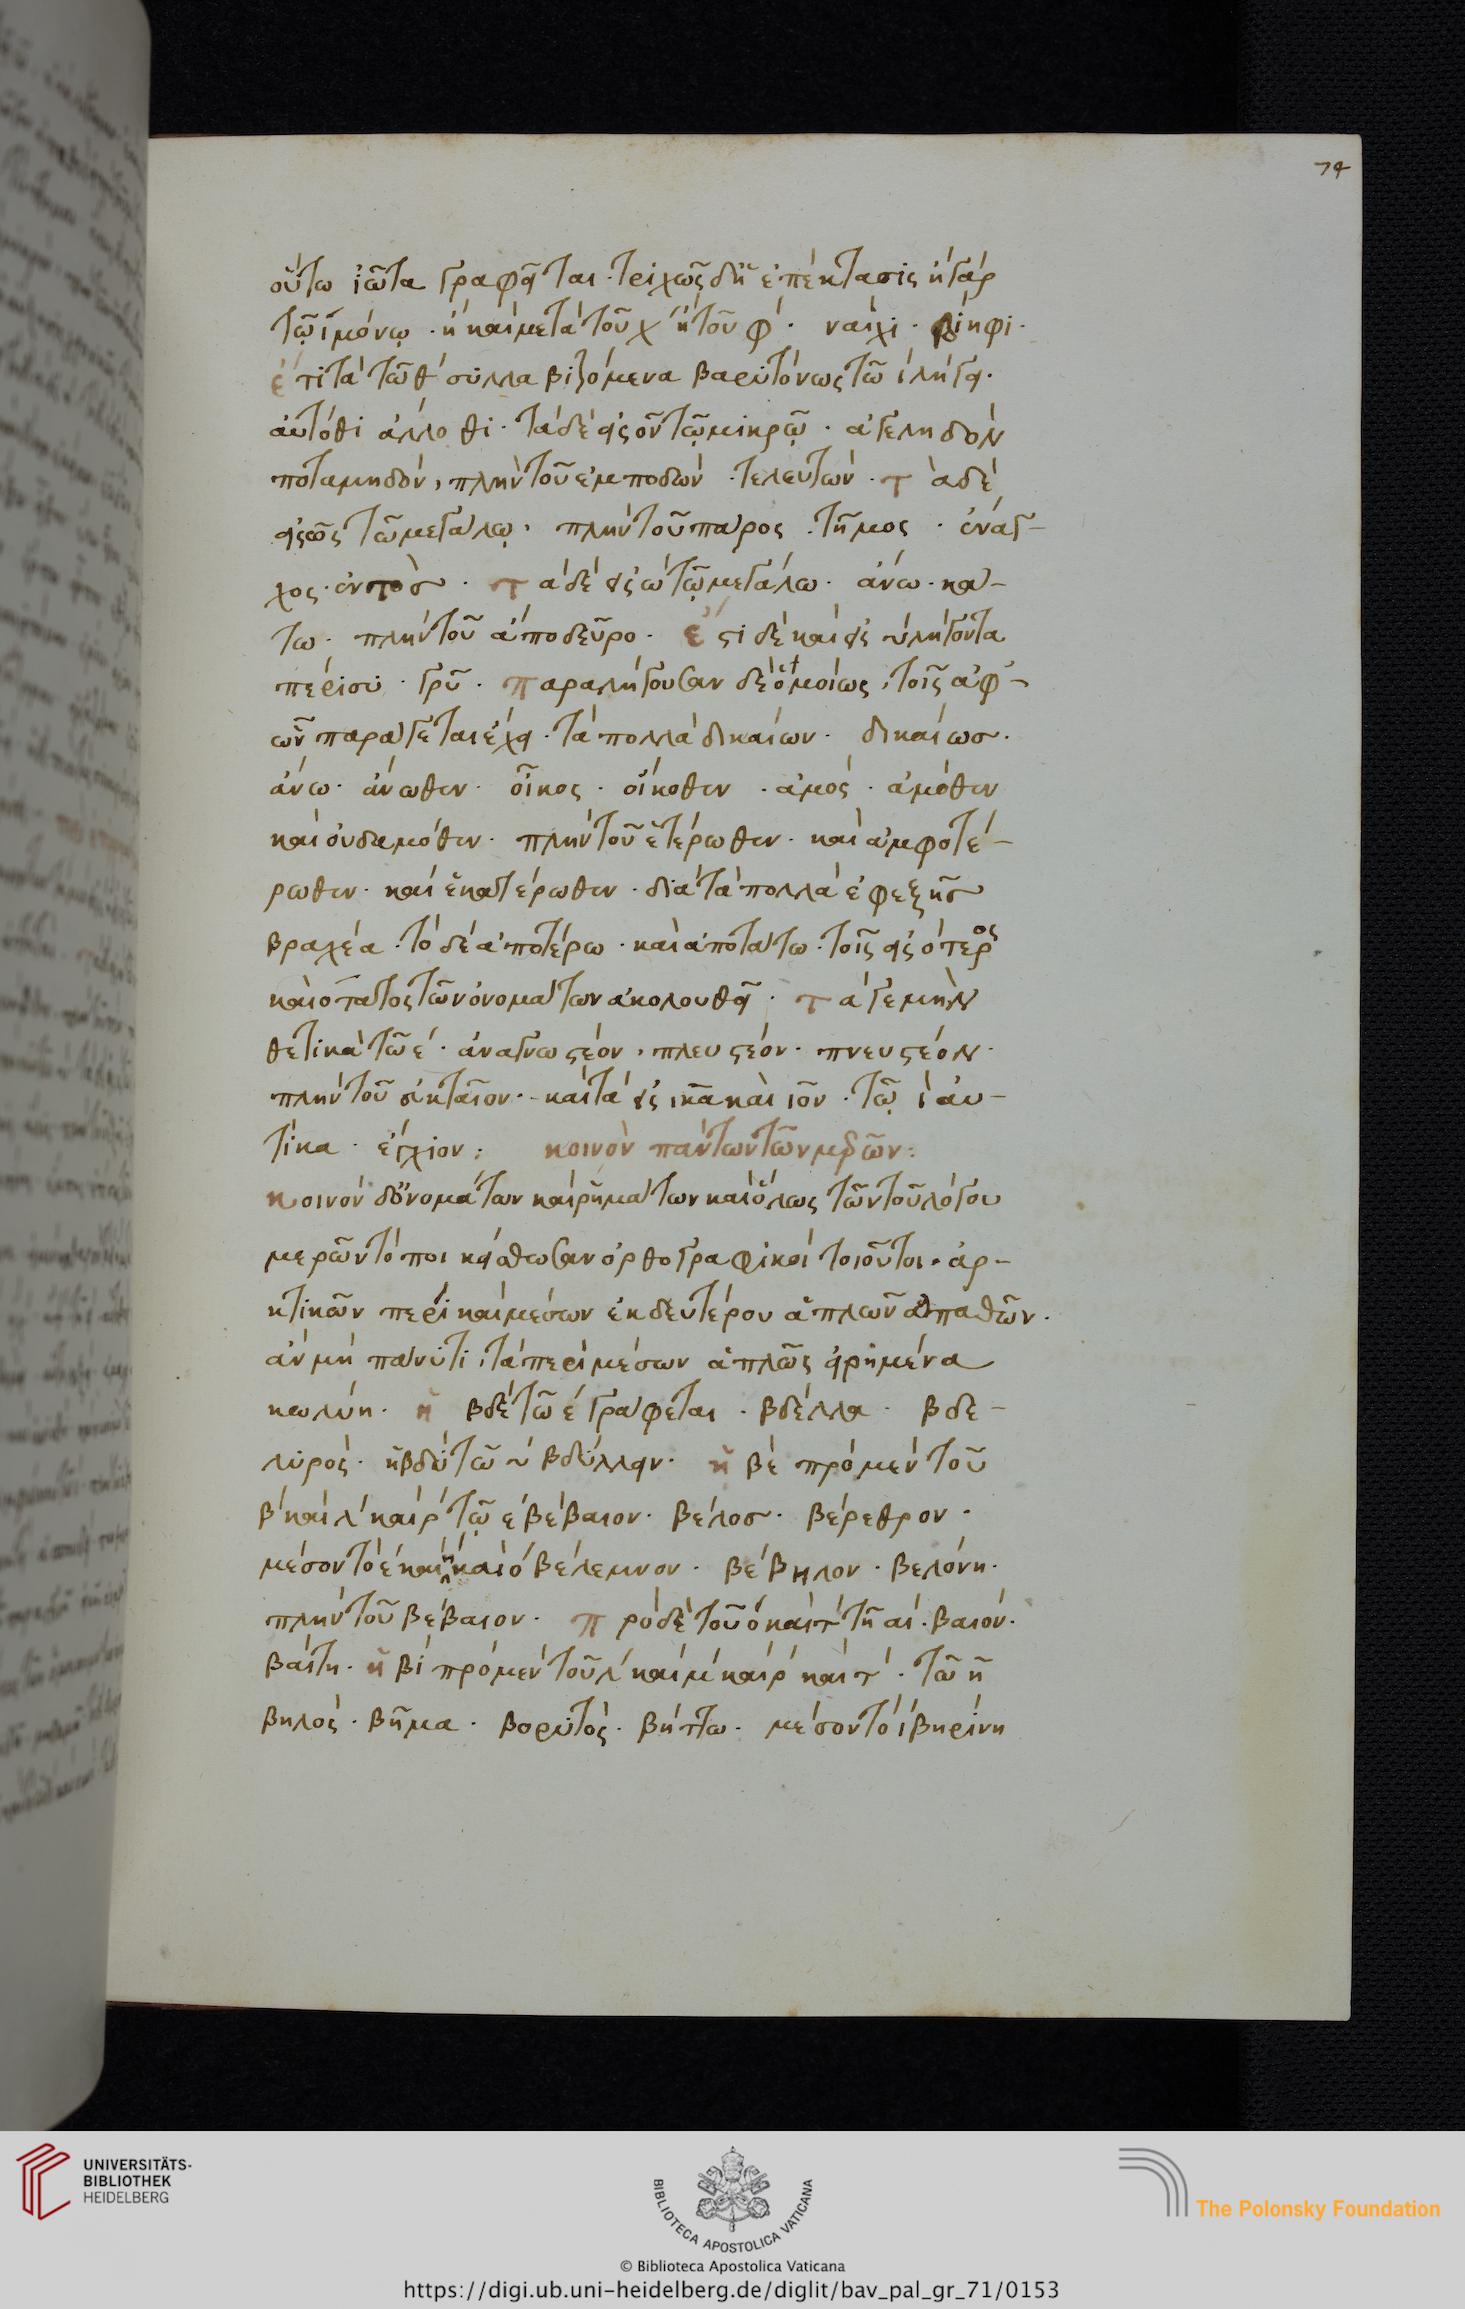 74
οὕτω ἰῶτα γραφεῖται· τριχῶς δὴ ἐπέκτασις ἢ γὰρ
τῷ ι μόνῳ· ἢ καὶ μετὰ τοῦ χ ἢ τοῦ φ· ναίχι· βίηφι·
ἔτι τὰ τῶ θ συλλαβιζόμενα βαρυτόνως τῶ ι λήγει·
αὐτόθι ἄλλοθι· τὰ δὲ εἰς ον τῷ μικρῷ· ἀγεληδὸν
ποταμηδόν, πλὴν τοῦ ἐμποδών· τελευτῶν· τὰ δὲ
εἰς ως τῶ μεγάλῳ, πλὴν τοῦ πάρος· τῆμος· ἔναγ-
χος· ἐντὸσ· τὰ δὲ εἰς ω τῷ μεγάλω· ἄνω· κά-
τω· πλὴν τοῦ ἀπο δεῦρο· ἔστι δὲ καὶ εἰς υ λήγοντα
πέρισυ· γρῦ· παραλήγουσαν δὲ ὁμοίως, τοῖς ἀφ'-
ὧν παράγεται ἔχει· τὰ πολλὰ δικαίων· δικαίωσ·
ἄνω· ἄνωθεν· οἶκος· οἴκοθεν· ἀμός· ἀμόθεν
καὶ οὐδαμόθεν· πλὴν τοῦ ἑτέρωθεν· καὶ ἀμφοτέ-
ρωθεν· καὶ ἑκατέρωθεν· διὰ τὰ πολλὰ ἐφεξῆσ
βραχέα· τὸ δὲ ἀποτέρω· καὶ ἀποτάτω· τοῖς εἰς ότερος
καὶ ότατος τῶν ὀνομάτων ἀκολουθεῖ· τά γε μὴν
θετικὰ τῶ ε· ἀναγνωστέον, πλευστέον· πνευστέον·
πλὴν τοῦ ἀκταῖον· καὶ τὰ εἰς ικα καὶ ιον· τῷ ι αὐ-
τίκα· αἴγχιον: κοινὸν πάντων τῶν μερῶν:
κοινὸν δ' ὀνομάτων καὶ ῥημάτων καὶ ὅλως τῶν τοῦ λόγου
μερῶν τόποι κείσθωσαν ὀρθογραφικοὶ τοιοῦτοι· ἀρ-
κτικῶν περὶ καὶ μέσων ἐκ δευτέρου ἁπλῶν ἀπαθῶν·
ἂν μή πάνυ τι, τὰ περὶ μέσων ἁπλῶς εἰρημένα
κωλύη· ἡ βδε τῶ ε γράφεται· βδέλλα· βδε-
λυρός· ἡ βδυ τῶ υ βδύλλειν· ἡ βε πρὸ μὲν τοῦ
β καὶ λ καὶ ρ τῷ ε βέβαιον· βέλοσ· βέρεθρον·
μέσον τὸ ε καὶ η καὶ ο βέλεμνον· βέβηλον· βελόνη·
πλὴν τοῦ βέβαιον· πρὸ δὲ τοῦ ο καὶ τ τῇ αι· βαιόν·
βαίτη· ἡ βι πρὸ μὲν τοῦ λ καὶ μ καὶ ρ καὶ τ· τῶ η
βηλός· βῆμα· βορυτός· βήττω· μέσον τὸ ι βηρίνη
UNIVERSITÄTS-
BIBLIOTHEK
HEIDELBERG
BIBLIOTECA APOSTOLICA VATICANA
The Polonsky Foundation
© Biblioteca Apostolica Vaticana
https://digi.ub.uni-heidelberg.de/diglit/bav_pal_gr_71/0153